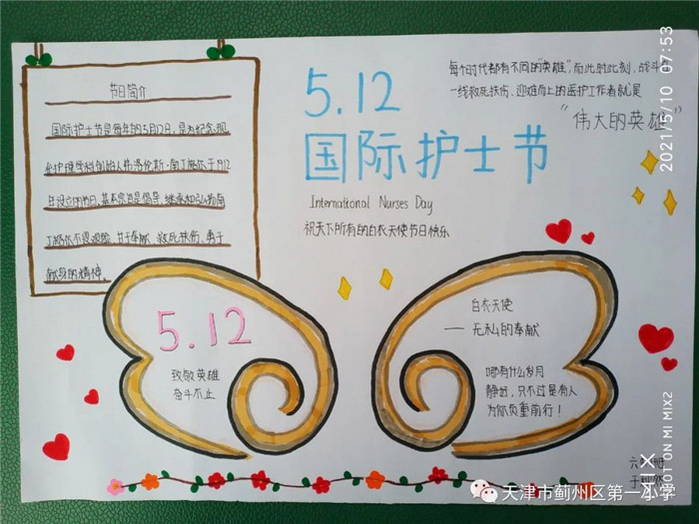 节日简介
国际护士节是每年的5月12日,是为纪念现
代护理学科创始人弗洛伦斯·南丁格尔于1912
年设立的节日,基本宗旨是倡导、继承和弘扬南
丁格尔不畏艰险、甘于奉献、救死扶伤、勇于
献身的精神。
5.12
国际护士节
International Nurses Day
祝天下所有的白衣天使节日快乐
每个时代都有不同的"英雄",而此时此刻,战斗在
一线救死扶伤、迎难而上的医护工作者就是
"伟大的英雄"
5.12
致敬英雄
奋斗不止
白衣天使
——无私的奉献
哪有什么岁月
静好,只不过是有人
为你负重前行!
2021/5/10 07:53
SHOT ON MI MIX2
天津市蓟州区第一小学